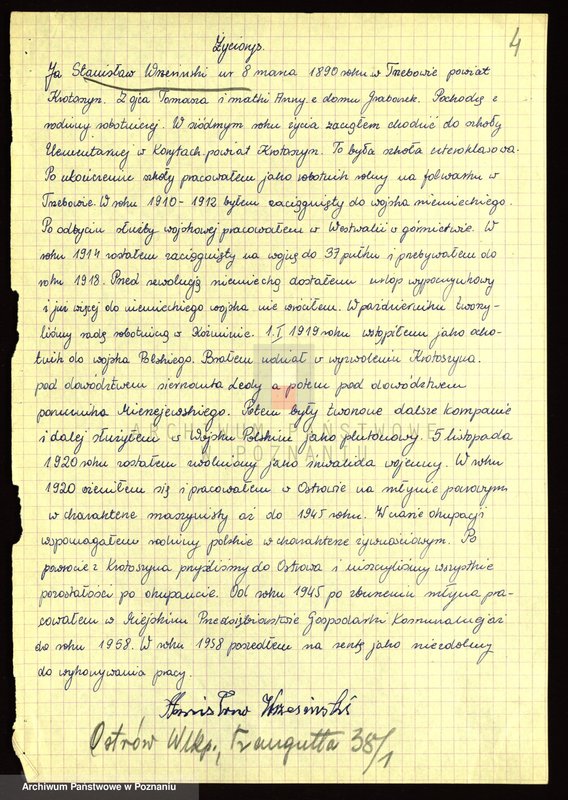 4
Życiorys.
Ja Stanisław Wrzesiński ur 8 marca 1890 roku w Trzebowie powiat
Krotoszyn. Z ojca Tomasza i matki Anny z domu Graborek. Pochodzę z
rodziny robotniczej. W siódmym roku życia zacząłem chodzić do szkoły
Elementarnej w Korytach powiat Krotoszyn. To była szkoła czteroklasowa.
Po ukończeniu szkoły pracowałem jako robotnik rolny na folwarku w
Trzebowie. W roku 1910-1912 byłem zaciągnięty do wojska niemieckiego.
Po odbyciu służby wojskowej pracowałem w Westwalii w górnictwie. W
roku 1914 zostałem zaciągnięty na wojnę do 37 pułku i przebywałem do
roku 1918. Przed rewolucją niemiecką dostałem urlop wypoczynkowy
i już więcej do niemieckiego wojska nie wróciłem. W październiku tworzy-
liśmy radę robotniczą w Koźminie. 1.I 1919 roku wstąpiłem jako ocho-
tnik do wojska Polskiego. Brałem udział w wyzwoleniu Krotoszyna.
pod dowództwem sierżanta Ledy a potem pod dowództwem
porucznika Mieniejewskiego. Potem były tworzone dalsze kompanie
i dalej służyłem w Wojsku Polskim jako plutonowy. 5 listopada
1920 roku zostałem zwolniony jako inwalida wojenny. W roku
1920 ożeniłem się i pracowałem w Ostrowie na młynie parowym
w charakterze maszynisty aż do 1945 roku. W czasie okupacji
wspomagałem rodziny polskie w charakterze żywnościowym. Po
powrocie z Krotoszyna przyszliśmy do Ostrowa i niszczyliśmy wszystkie
pozostałości po okupancie. Od roku 1945 po zburzeniu młyna pra-
cowałem w Miejskim Przedsiębiorstwie Gospodarki Komunalnej aż
do roku 1958. W roku 1958 poszedłem na rentę jako niezdolny
do wykonywania pracy.
Stanisław Wrzesiński
Ostrów Wlkp., Traugutta 38/1
ARCHIWUM PAŃSTWOWE
W POZNANIU
Archiwum Państwowe w Poznaniu